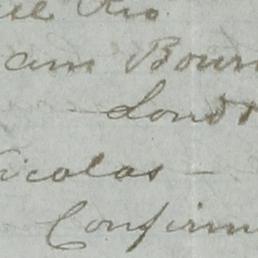 Rio.
am Bourn
Lond
Nicolas —
Confirm